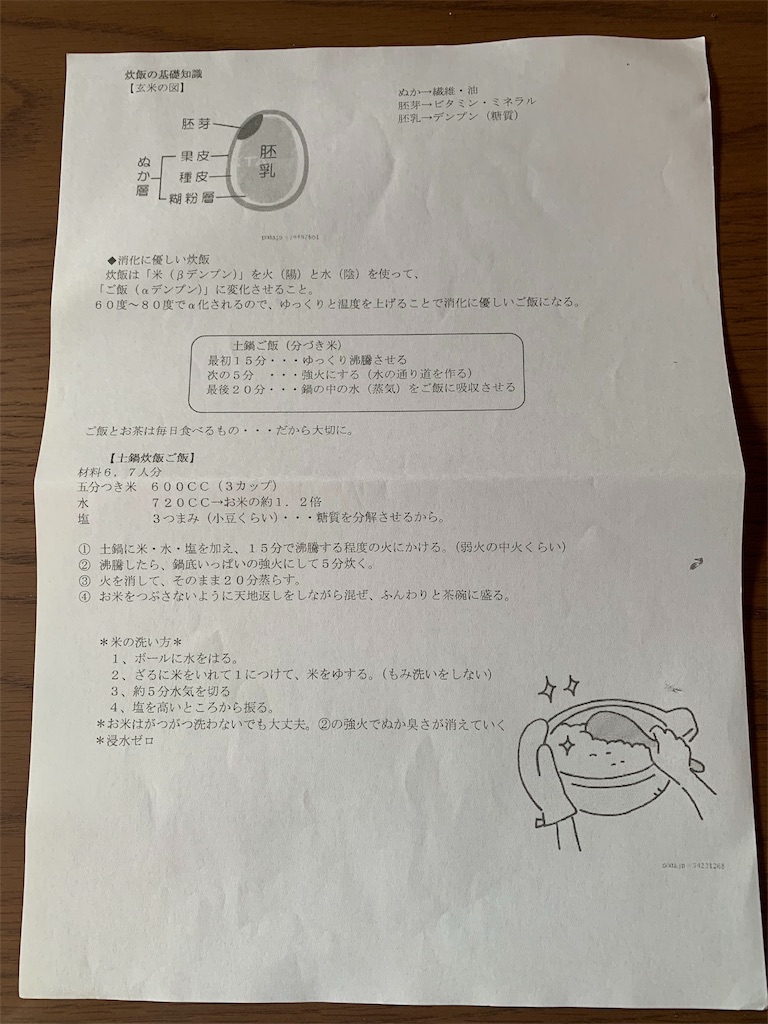 炊飯の基礎知識
【玄米の図】
ぬか→繊維・油
胚芽→ビタミン・ミネラル
胚乳→デンプン（糖質）
胚芽
ぬか層
果皮
種皮
糊粉層
胚乳
◆消化に優しい炊飯
炊飯は「米（βデンプン）」を火（陽）と水（陰）を使って、
「ご飯（αデンプン）」に変化させること。
６０度～８０度でα化されるので、ゆっくりと温度を上げることで消化に優しいご飯になる。
土鍋ご飯（分づき米）
最初１５分・・・ゆっくり沸騰させる
次の５分　・・・強火にする（水の通り道を作る）
最後２０分・・・鍋の中の水（蒸気）をご飯に吸収させる
ご飯とお茶は毎日食べるもの・・・だから大切に。
【土鍋炊飯ご飯】
材料６，７人分
五分つき米　６００ＣＣ（３カップ）
水　７２０ＣＣ→お米の約１．２倍
塩　３つまみ（小豆くらい）・・・糖質を分解させるから。
① 土鍋に米・水・塩を加え、１５分で沸騰する程度の火にかける。（弱火の中火くらい）
② 沸騰したら、鍋底いっぱいの強火にして５分炊く。
③ 火を消して、そのまま２０分蒸らす。
④ お米をつぶさないように天地返しをしながら混ぜ、ふんわりと茶碗に盛る。
＊米の洗い方＊
１、ボールに水をはる。
２、ざるに米をいれて１につけて、米をゆする。（もみ洗いをしない）
３、約５分水気を切る
４、塩を高いところから振る。
＊お米はがつがつ洗わないでも大丈夫。②の強火でぬか臭さが消えていく
＊浸水ゼロ